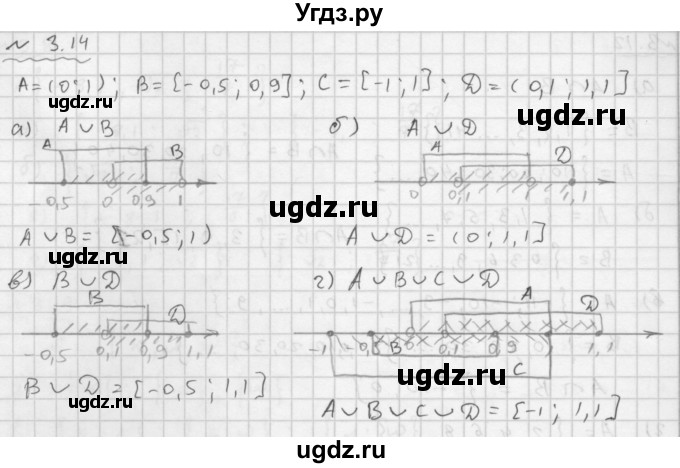 Угдз.ру
№ 3.14
A=(0;1); B=[-0,5; 0,9]; C=[-1;1]; D=(0,1; 1,1]
gdz.ru
gdz.ru
gdz.ru
а) A∪B б) A∪D
A B A D
-0,5 0 0,9 1 0 0,1 1 1,1
gdz.ru
A∪B=[-0,5; 1) A∪D=(0; 1,1]
в) B∪D г) A∪B∪C∪D
B D A D
-0,5 0,1 0,9 1,1 -1 -0,5 B 0 0,1 0,9 1 1,1
C
gdz.ru
gdz.ru
B∪D=[-0,5; 1,1]
A∪B∪C∪D=[-1; 1,1]
gdz.ru